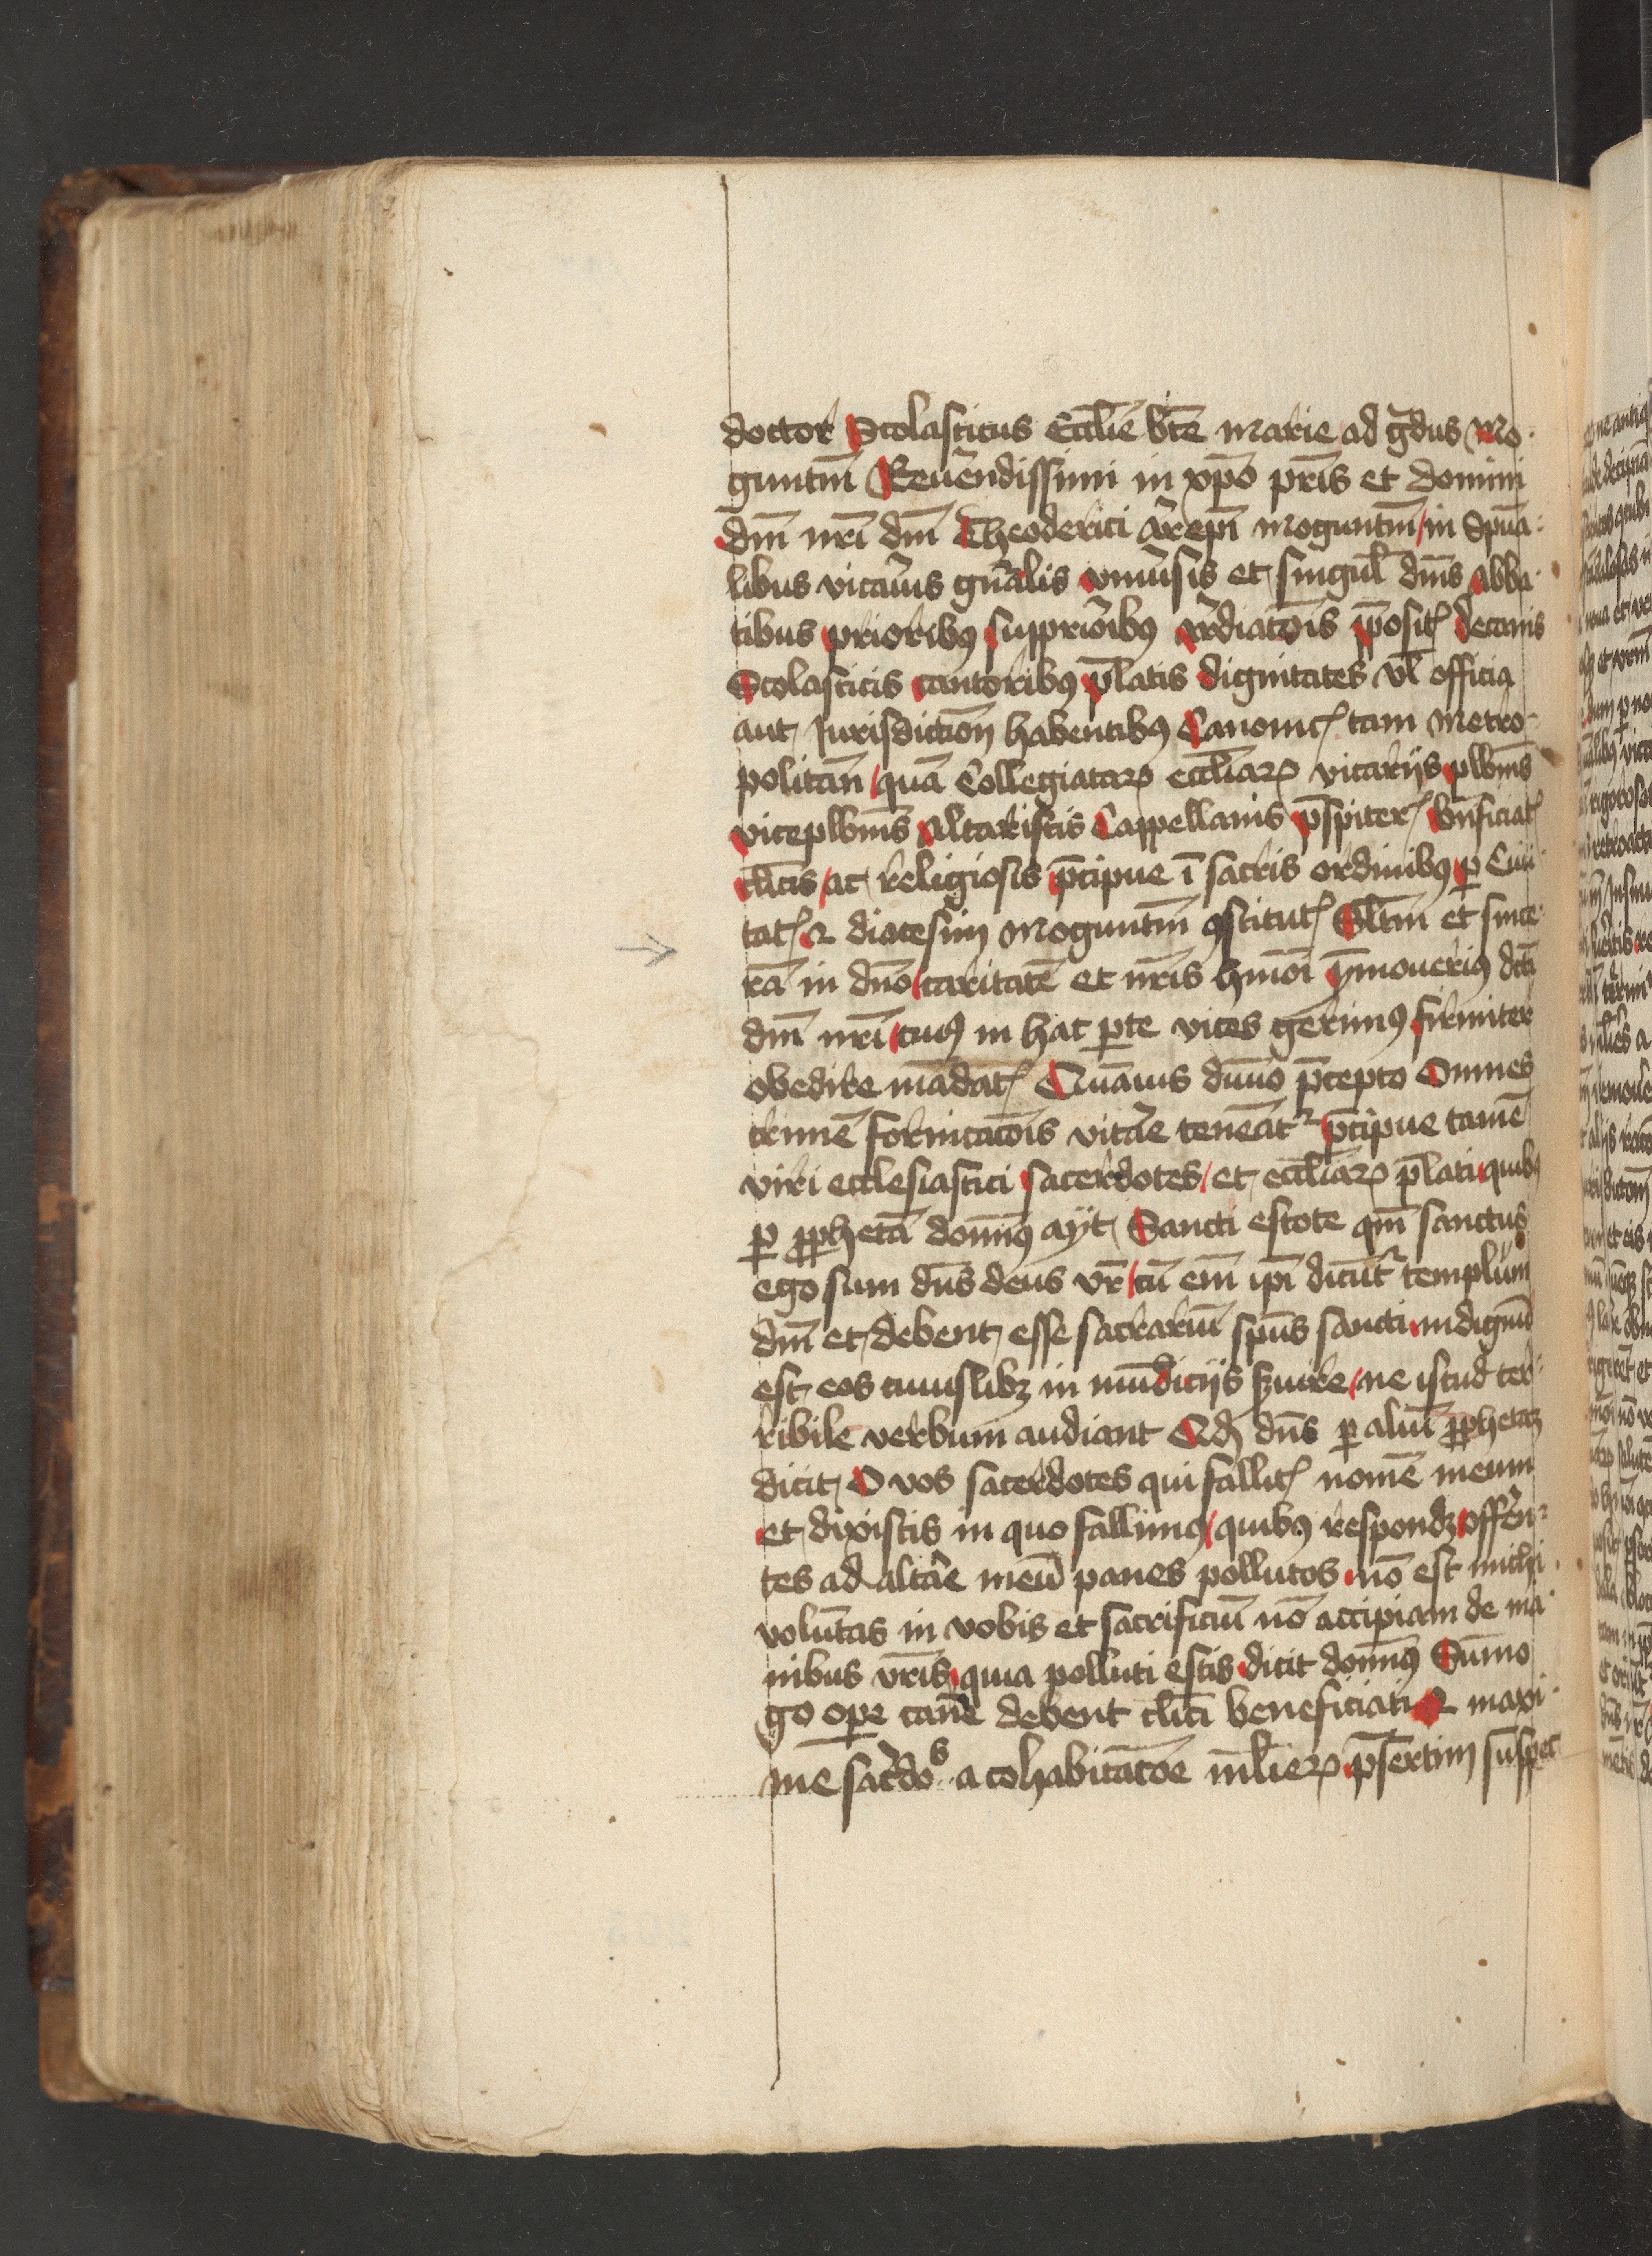 doctor Scolasticus Ecclīe btē Marie ad g̅dus Mo
guntin̄ Reuēndissimi in xp̄o pr̄is et domini
dn̄i nr̄i dn̄i Theoderici ār̄epi̅ Moguntin̄ / in Spūa
libus vicāius gn̄alis vniūsis et singul̄ dn̄is abba
tibus prioribꝯ supprioībꝯ ar̄diacōis p̄posit̄ decanis
Scolasticis cantoribꝯ p̄latis dignitates vl̄ officia
aut Iurisdictiōn habentibꝯ Canonic̄ tam Metro
politan̄ / quā Collegiataꝝ eccl̄iaꝝ vicarijs plb̄nis
viceplb̄nis Altaristis Cappellanis p̄spiter̄ bn̄ficiat̄
cl̄icis / ac religiosis p̄cipue ī sacris ordinibꝯ ꝑ Ciui
tat̄ ⁊ diocesim Moguntin̄ ꝯstitut̄ Slt̄m et since
rā in dn̄o / caritatē et nr̄is hmōi ymmoueriꝯ dc̄i
dn̄i nr̄i / cuiꝯ in hac ꝑte vices gerimꝯ firmiter
obedire mādat̄ Quāuis diuīo p̄cepto Omnes
crimē fornicacōis vitār̄e teneāt᷑ p̄cipue tamē
viri ecclesiastici sacerdotes / et eccl̄iaꝝ p̄lati quibꝯ
ꝑ ꝓphetā domīꝯ ayt Sancti estote qm̄ sanctus
ego sum dn̄s deus vr̄ / cū em̄ ip̄i dicūt᷑ templum
dn̄i et debent esse sacrariū sp̄us sancti indignū
est eos cuiuslibꝫ in mūdicijs ẜuire / ne istud ter
ribile verbum audiant Qd̄ dn̄s ꝑ aliū ꝓphetaꝫ
dicit O vos sacerdotes qui fallit̄ nomē meum
et dixistis in quo fallimꝯ / quibꝯ respondꝫ offēn
tes ad altār̄e meū panes pollutos nō est michi
volūtas in vobis et sacrificiū nō accipiam de ma
nibus vr̄is quia polluti estis dicit domīꝯ Sūmo
go oꝑe cauēr̄e debent cl̄ici beneficiati ⁊ maxi
me sac̄rdo​s a cohabitacōe ml̄ieꝝ p̄sertim suspec